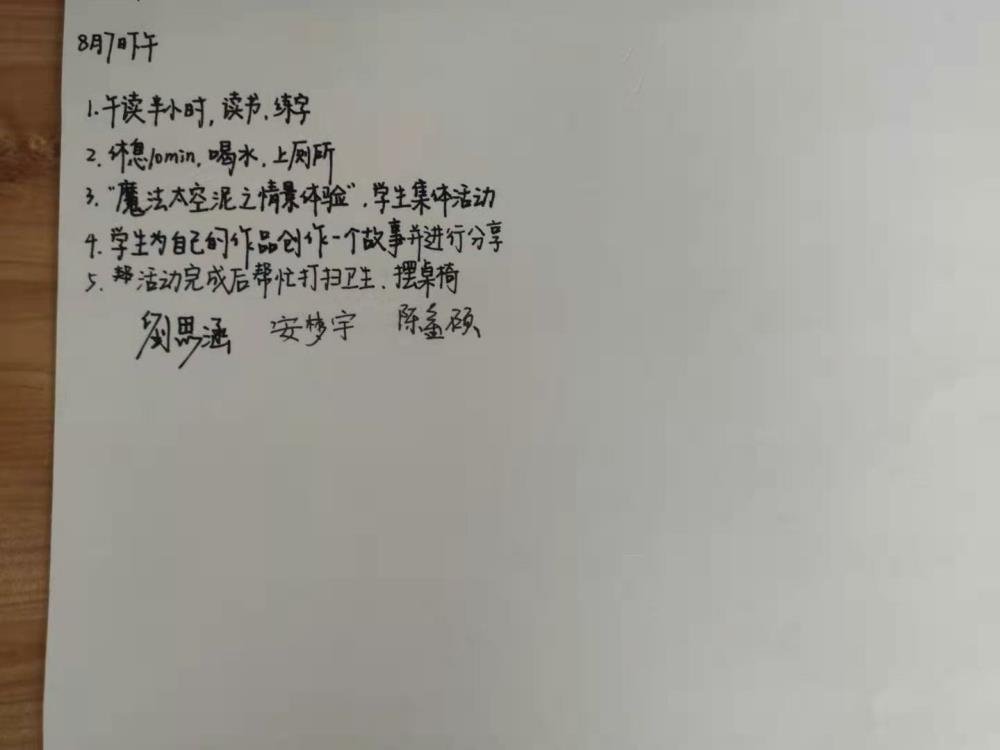 8月7日下午
1.午读半小时,读书、练字
2.休息10min,喝水、上厕所
3."魔法太空泥之情景体验",学生集体活动
4.学生为自己的作品创作一个故事并进行分享
5.活动完成后帮忙打扫卫生、摆桌椅
刘思涵 安梦宇 陈鑫硕